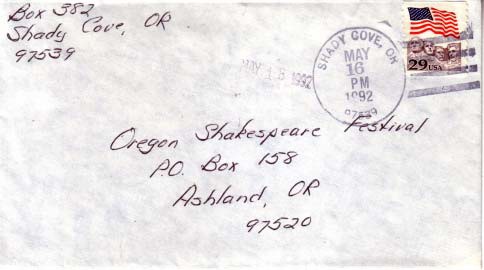 Box 382
Shady Cove, OR
97539
MAY 18 1992
SHADY COVE, OR
MAY
16
PM
1992
97539
29 USA
Oregon Shakespeare Festival
P.O. Box 158
Ashland, OR
97520